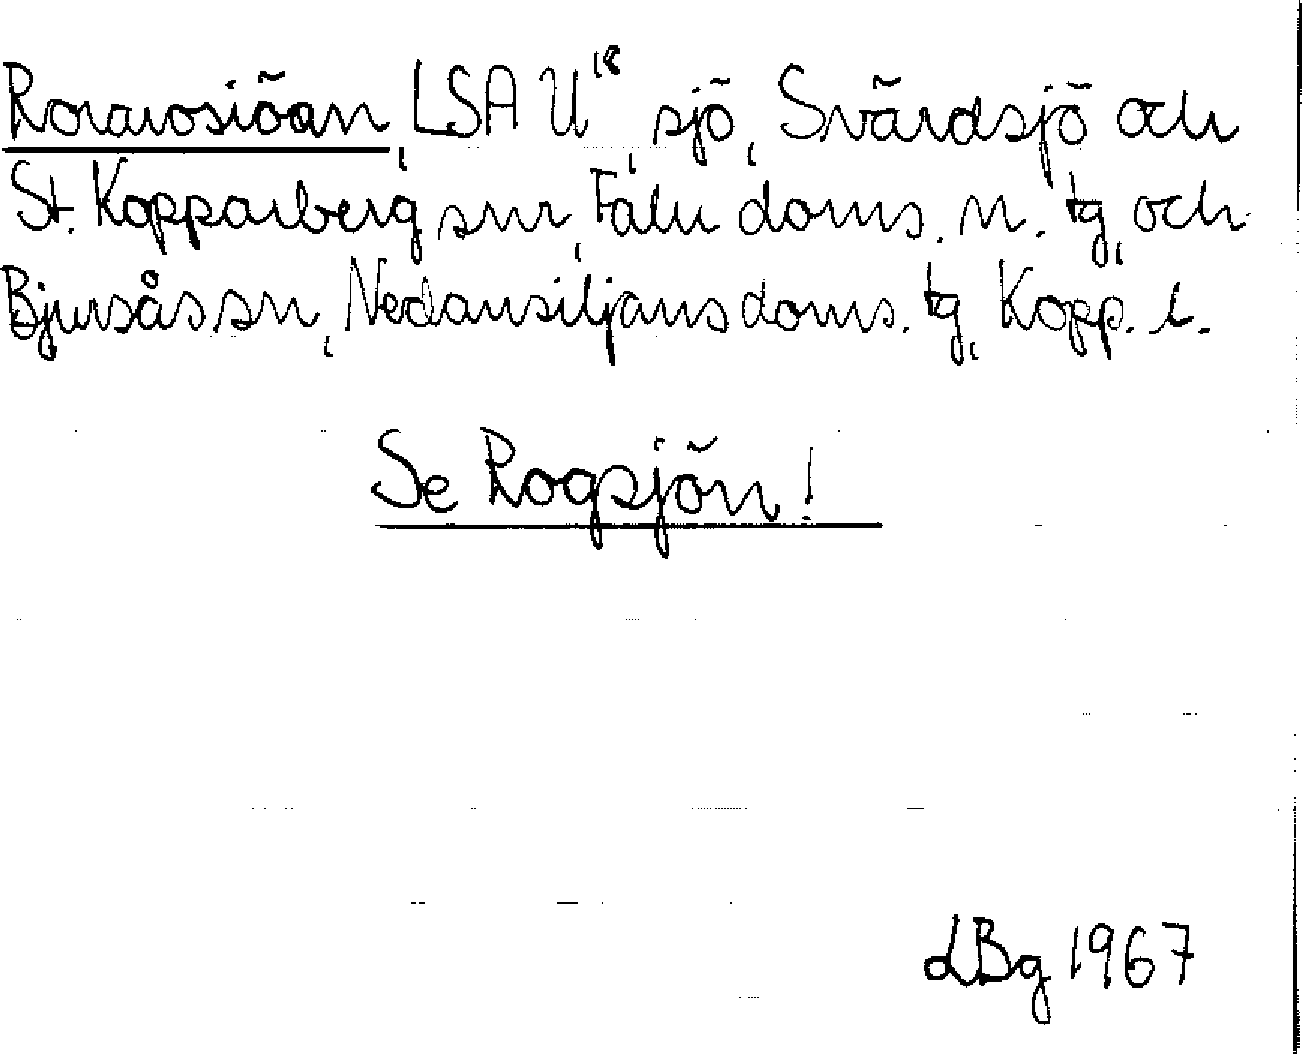 Rorarosiöan, LSA U¹⁸, sjö, Svärdsjö och
St. Kopparberg snr, Falu doms. n. tg, och
Bjursås sn, Nedansiljans doms. tg, Kopp. l.
Se Rogsjön!
LBg 1967